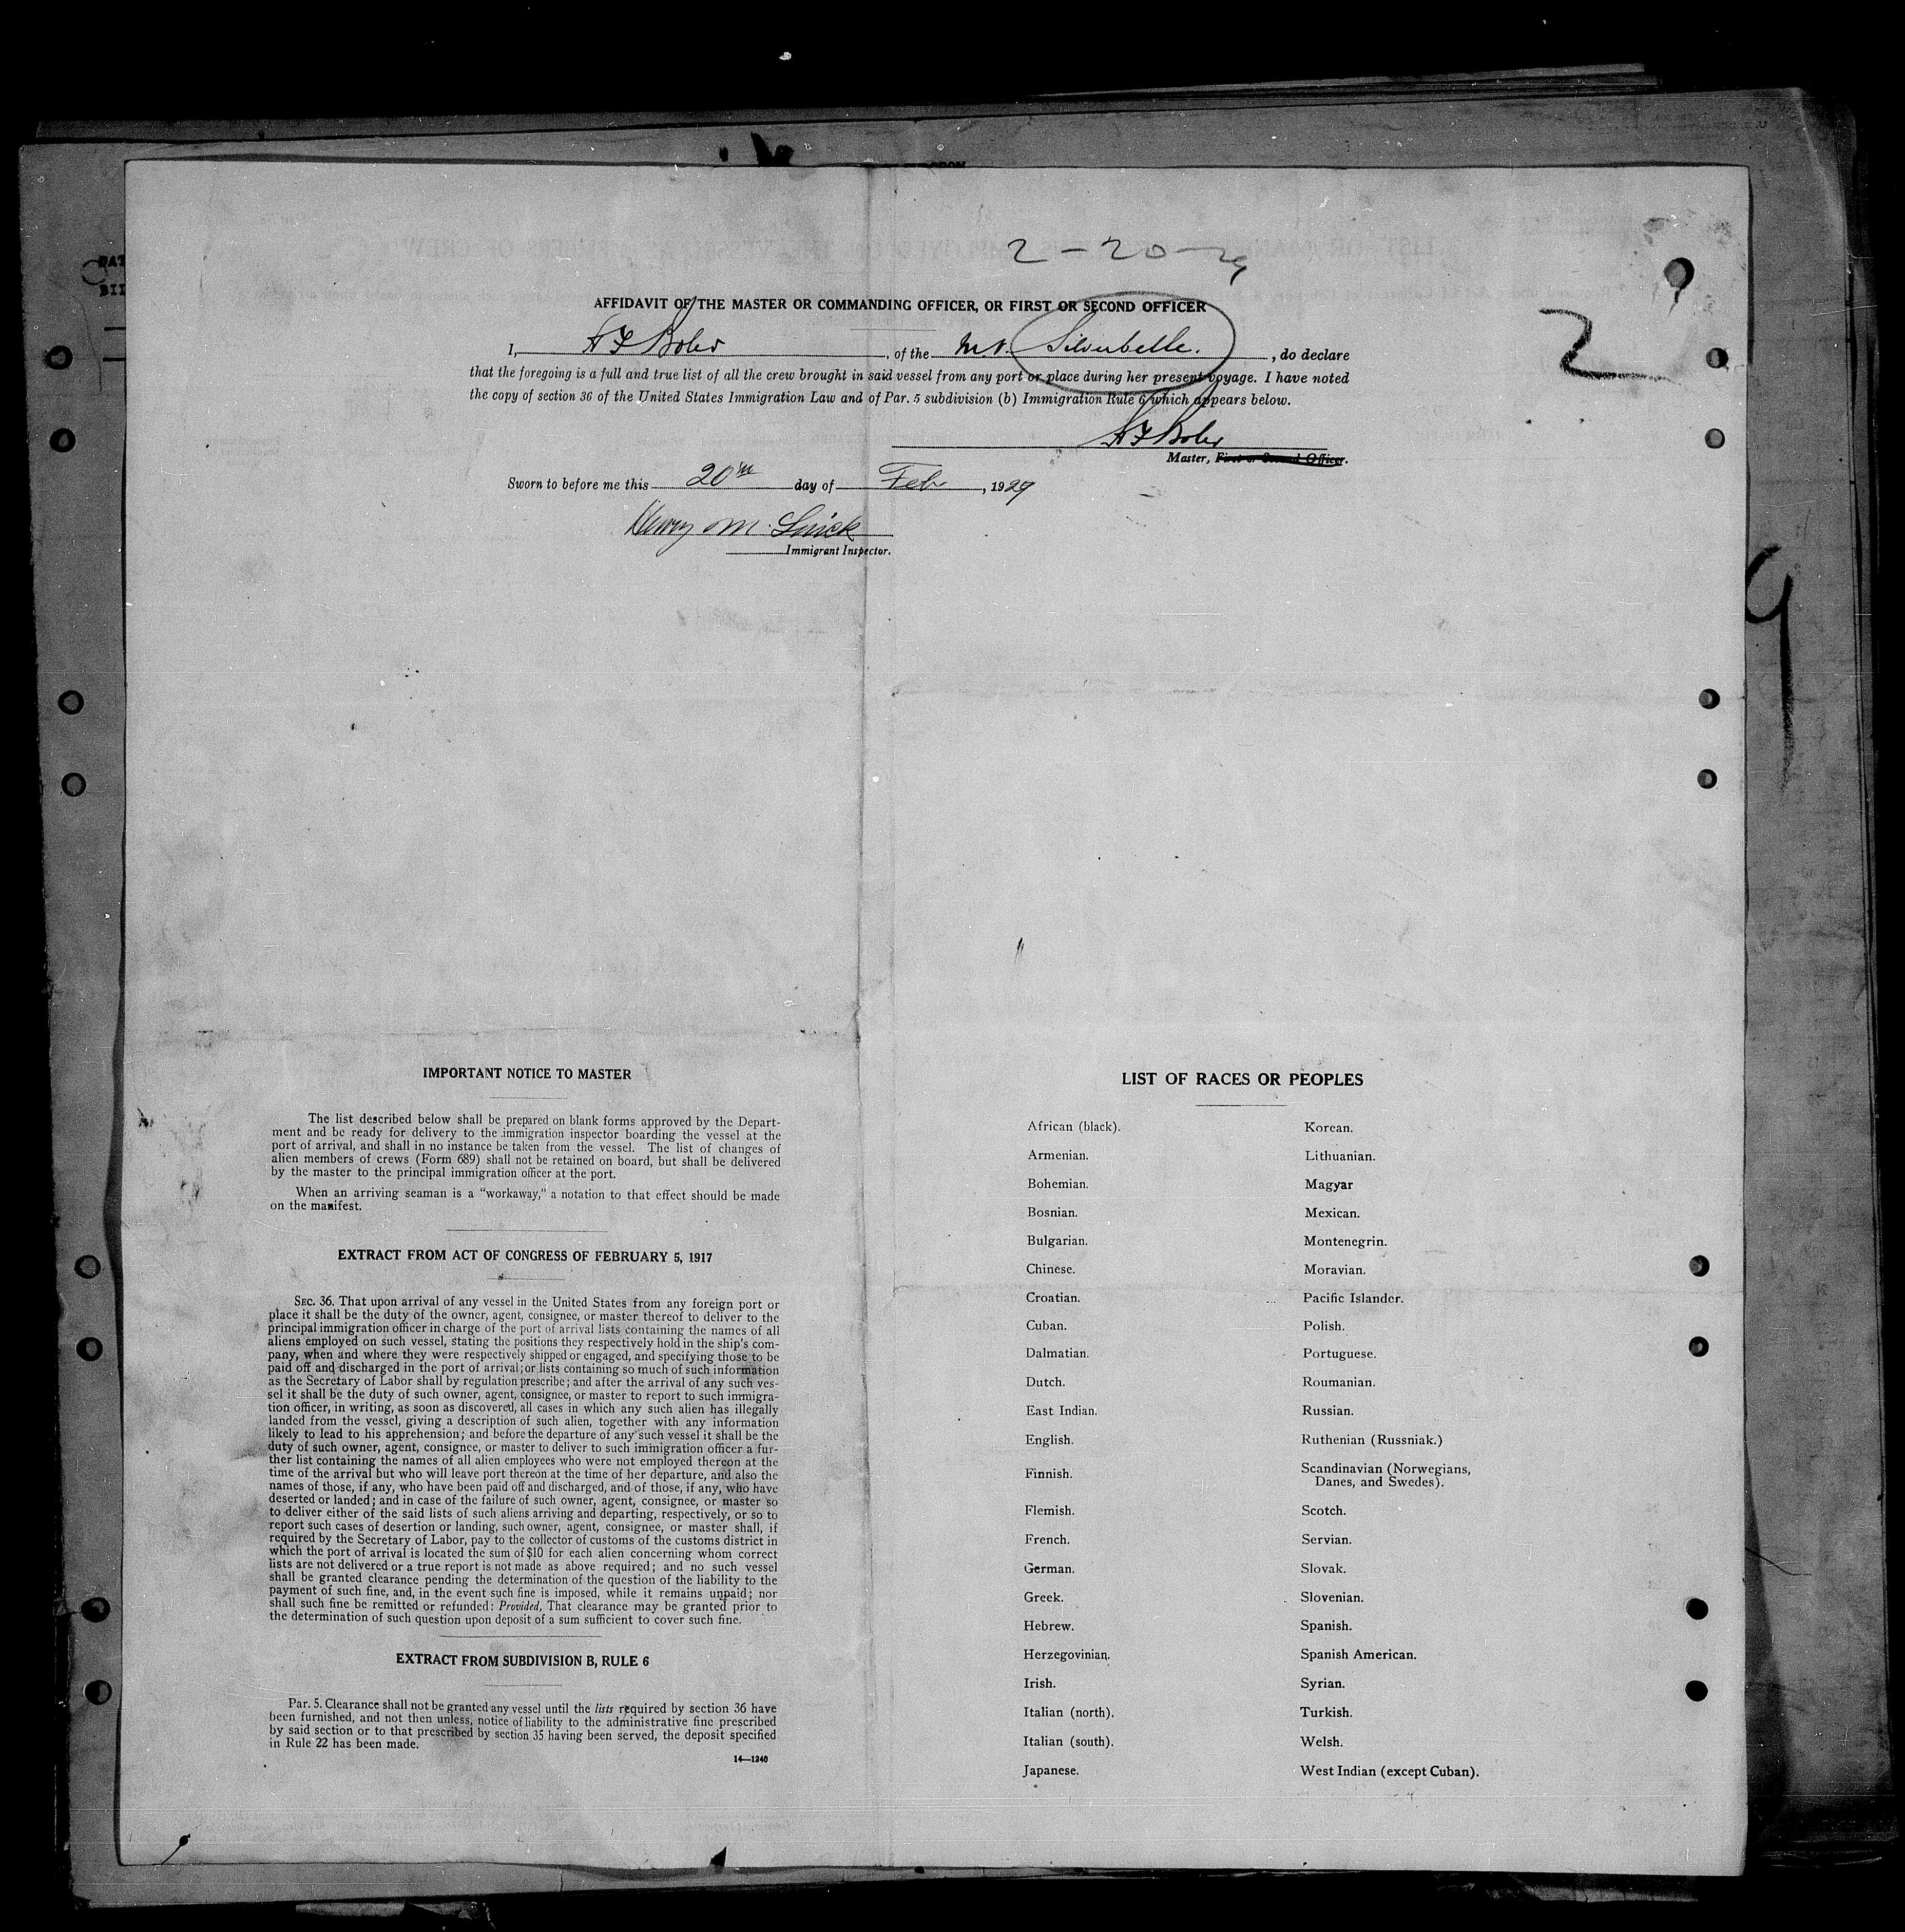 2-20-29
AFFIDAVIT OF THE MASTER OR COMMANDING OFFICER, OR FIRST OR SECOND OFFICER
I, , of the M.V. Silverbelle. , do declare
that the foregoing is a full and true list of all the crew brought in said vessel from any port or place during her present voyage. I have noted
the copy of section 36 of the United States Immigration Law and of Par. 5 subdivision (b) Immigration Rule 6 which appears below.
Master, First or Second Officer.
Sworn to before me this 20th day of Feb , 1929
Henry M.
Immigrant Inspector.
2
9
IMPORTANT NOTICE TO MASTER
The list described below shall be prepared on blank forms approved by the Depart-
ment and be ready for delivery to the immigration inspector boarding the vessel at the
port of arrival, and shall in no instance be taken from the vessel. The list of changes of
alien members of crews (Form 689) shall not be retained on board, but shall be delivered
by the master to the principal immigration officer at the port.
When an arriving seaman is a "workaway," a notation to that effect should be made
on the manifest.
EXTRACT FROM ACT OF CONGRESS OF FEBRUARY 5, 1917
SEC. 36. That upon arrival of any vessel in the United States from any foreign port or
place it shall be the duty of the owner, agent, consignee, or master thereof to deliver to the
principal immigration officer in charge of the port of arrival lists containing the names of all
aliens employed on such vessel, stating the positions they respectively hold in the ship's com-
pany, when and where they were respectively shipped or engaged, and specifying those to be
paid off and discharged in the port of arrival; or lists containing so much of such information
as the Secretary of Labor shall by regulation prescribe; and after the arrival of any such ves-
sel it shall be the duty of such owner, agent, consignee, or master to report to such immigra-
tion officer, in writing, as soon as discovered, all cases in which any such alien has illegally
landed from the vessel, giving a description of such alien, together with any information
likely to lead to his apprehension; and before the departure of any such vessel it shall be the
duty of such owner, agent, consignee, or master to deliver to such immigration officer a fur-
ther list containing the names of all alien employees who were not employed thereon at the
time of the arrival but who will leave port thereon at the time of her departure, and also the
names of those, if any, who have been paid off and discharged, and of those, if any, who have
deserted or landed; and in case of the failure of such owner, agent, consignee, or master so
to deliver either of the said lists of such aliens arriving and departing, respectively, or so to
report such cases of desertion or landing, such owner, agent, consignee, or master shall, if
required by the Secretary of Labor, pay to the collector of customs of the customs district in
which the port of arrival is located the sum of $10 for each alien concerning whom correct
lists are not delivered or a true report is not made as above required; and no such vessel
shall be granted clearance pending the determination of the question of the liability to the
payment of such fine, and, in the event such fine is imposed, while it remains unpaid; nor
shall such fine be remitted or refunded: Provided, That clearance may be granted prior to
the determination of such question upon deposit of a sum sufficient to cover such fine.
EXTRACT FROM SUBDIVISION B, RULE 6
Par. 5. Clearance shall not be granted any vessel until the lists required by section 36 have
been furnished, and not then unless, notice of liability to the administrative fine prescribed
by said section or to that prescribed by section 35 having been served, the deposit specified
in Rule 22 has been made.
14—1240
LIST OF RACES OR PEOPLES
African (black).
Armenian.
Bohemian.
Bosnian.
Bulgarian.
Chinese.
Croatian.
Cuban.
Dalmatian.
Dutch.
East Indian.
English.
Finnish.
Flemish.
French.
German.
Greek.
Hebrew.
Herzegovinian.
Irish.
Italian (north).
Italian (south).
Japanese.
Korean.
Lithuanian.
Magyar
Mexican.
Montenegrin.
Moravian.
Pacific Islander.
Polish.
Portuguese.
Roumanian.
Russian.
Ruthenian (Russniak.)
Scandinavian (Norwegians,
Danes, and Swedes).
Scotch.
Servian.
Slovak.
Slovenian.
Spanish.
Spanish American.
Syrian.
Turkish.
Welsh.
West Indian (except Cuban).